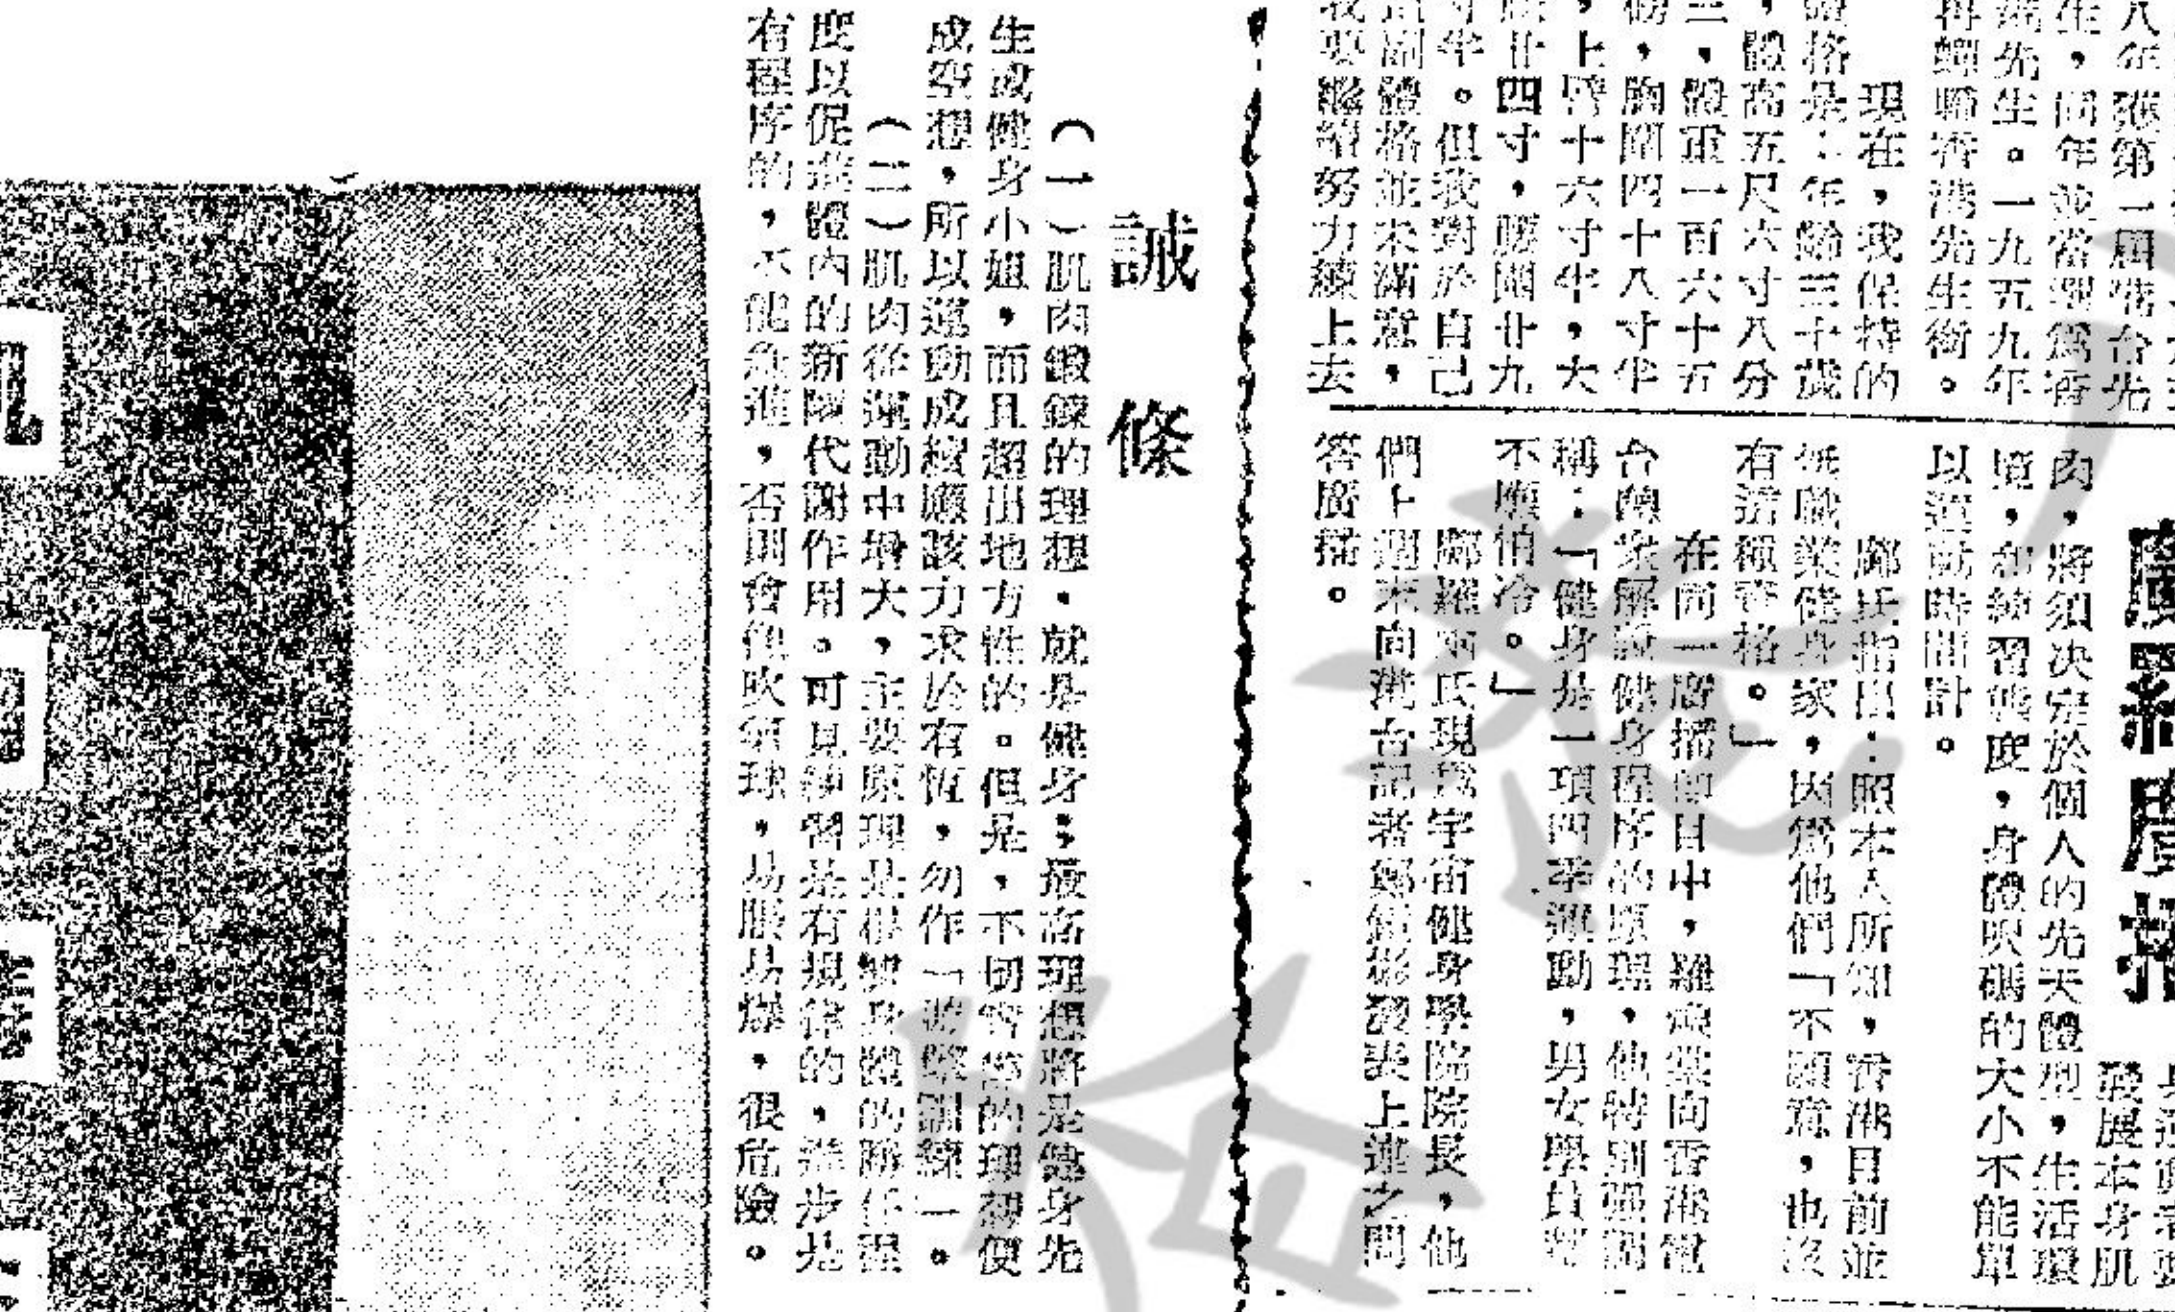 生，同年並當選為香
先生。一九五九年
再蟬聯香港先生銜。
現在，我保持的
體格是：年齡三十歲
，體高五尺六寸八分
，體重一百六十五
磅，胸圍四十八寸半
，上臂十六寸半，大
廿四寸，腰圍廿九
寸半。但我對於自己
這副體格並未滿意，
我要繼續努力練上去
發展本身肌
肉，將須決定於個人的先天體型，生活環
境，和練習態度，身體呎碼的大小不能單
以運動時間計。
鄺氏指出：照本人所知，香港目前並
無職業健身家，因為他們「不願意，也沒
有這種資格。」
在同一廣播節目中，羅煥棠向香港電
台聽眾解說健身程序的原理，他特別強調
稱：「健身是一項四季運動，男女學員皆
不應怕冷。」
鄺羅兩氏現為宇宙健身學院院長，他
們上週末向港台記者鄭鏡彬發表上述之問
答廣播。
誡 條
（一）肌肉鍛鍊的理想，就是健身；最高理想將是健身先
生或健身小姐，而且超出地方性的。但是，不切實際的理想便
成空想，所以運動成績應該力求於有恆，勿作「游擊訓練」。
（二）肌肉從運動中增大，主要原理是根據身體的勝任程
度以促進體內的新陳代謝作用。可見練習是有規律的，進步是
有程序的，不能急進，否則會像吹氣球，易脹易爆，很危險。